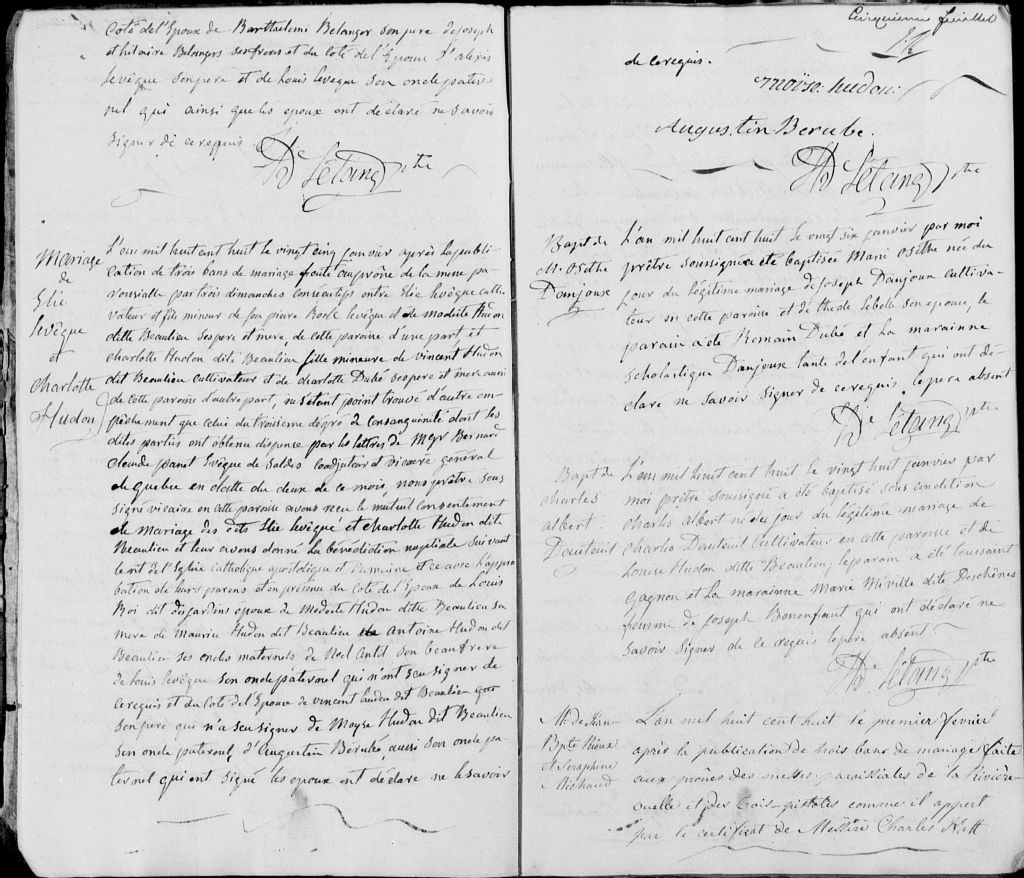 Coté de l'Epoux de Barthelemi Belanger son pere de joseph
et hilaire Belangers ses freres et du coté de l'Epouse d'alexis
levêque son pere et de Louis levêque son oncle pater
nel qui ainsi que les epoux ont déclaré ne savoir
signer de ce requis
Létang ptre
Mariage
de
Elie
levêque
et
Charlotte
Hudon
L'an mil huit cent huit le vingt cinq janvier après la publi
cation de trois bans de mariage faite au prône de la messe pa
roissialle par trois dimanches consécutifs entre Elie levêque culti
vateur et fils mineur de feu pierre Roch levêque et de modeste Hudon
ditte Beaulieu ses pere et mere, de cette paroisse d'une part, et
charlotte Hudon dite Beaulieu fille mineure de vincent Hudon
dit Beaulieu cultivateur et de charlotte Dubé ses pere et mere aussi
de cette paroisse d'autre part, ne s'étant point trouvé d'autre em
pêchement que celui du troisieme degré de Consanguinité dont les
dites parties ont obtenu dispense par les lettres de Mgr Bernard
claude panet Evêque de Saldes coadjuteur et vicaire général
de Quebec en datte du deux de ce mois, nous prêtre sous
signé vicaire en cette paroisse avons reçu le mutuel consentement
de mariage des dits Elie levêque et charlotte Hudon dite
Beaulieu et leur avons donné la bénédiction nuptiale suivant
le rit de l'Eglise catholique apostolique et Romaine et ce avec l'appro
bation de leurs parens et en présence du coté de l'Epoux de Louis
Roi dit desjardins epoux de Modeste Hudon ditte Beaulieu sa
mere de Maurice Hudon dit Beaulieu de antoine Hudon dit
Beaulieu ses oncles maternels de Noel Antil son beaufrere
de Louis levêque son oncle paternel qui n'ont seu signer de
ce requis et du Coté de l'Epouse de vincent hudon dit Beaulieu
son pere qui n'a seu signer de Moyse Hudon dit Beaulieu
son oncle paternel, d'Augustin Bérubé, aussi son oncle pa-
ternel qui ont signé les epoux ont déclaré ne le savoir
Cinquieme feuillet
de ce requis.
moïse: hudon:
Augustin Berube.
Létang ptre
Bapt de
M. Osethe
Danjoux
L'an mil huit cent huit le vingt six janvier par moi
prêtre soussigné a été baptisée Marie Osethe née du
jour du légitime mariage de joseph Danjoux cultiva-
teur en cette paroisse et de thecle lebelle son epouse, le
parain a été Romain Dubé et La marainne
scholastique Danjoux tante de l'enfant qui ont dé-
claré ne savoir signer de ce requis, le pere absent
Létang ptre
Bapt de
charles
albert
Dauteuil
L'an mil huit cent huit le vingt huit janvier par
moi prêtre soussigné a été baptisé sous condition
charles Albert né du jour du légitime mariage de
charles Dauteuil cultivateur en cette paroisse et de
Louise Hudon ditte Beaulieu, le parain a été toussaint
Gagnon et La marainne Marie Miville dite Deschênes
femme de joseph Bonenfant qui ont déclaré ne
savoir signer de ce requis le pere absent
Létang ptre
M. de Jean-
Bpte Rioux
et Seraphine
Michaud
L'an mil huit cent huit le premier février
après la publication de trois bans de mariage faite
aux prônes des messes paroissiales de la Rivière-
ouelle et des trois-pistoles comme il appert
par le certificat de Messire Charles